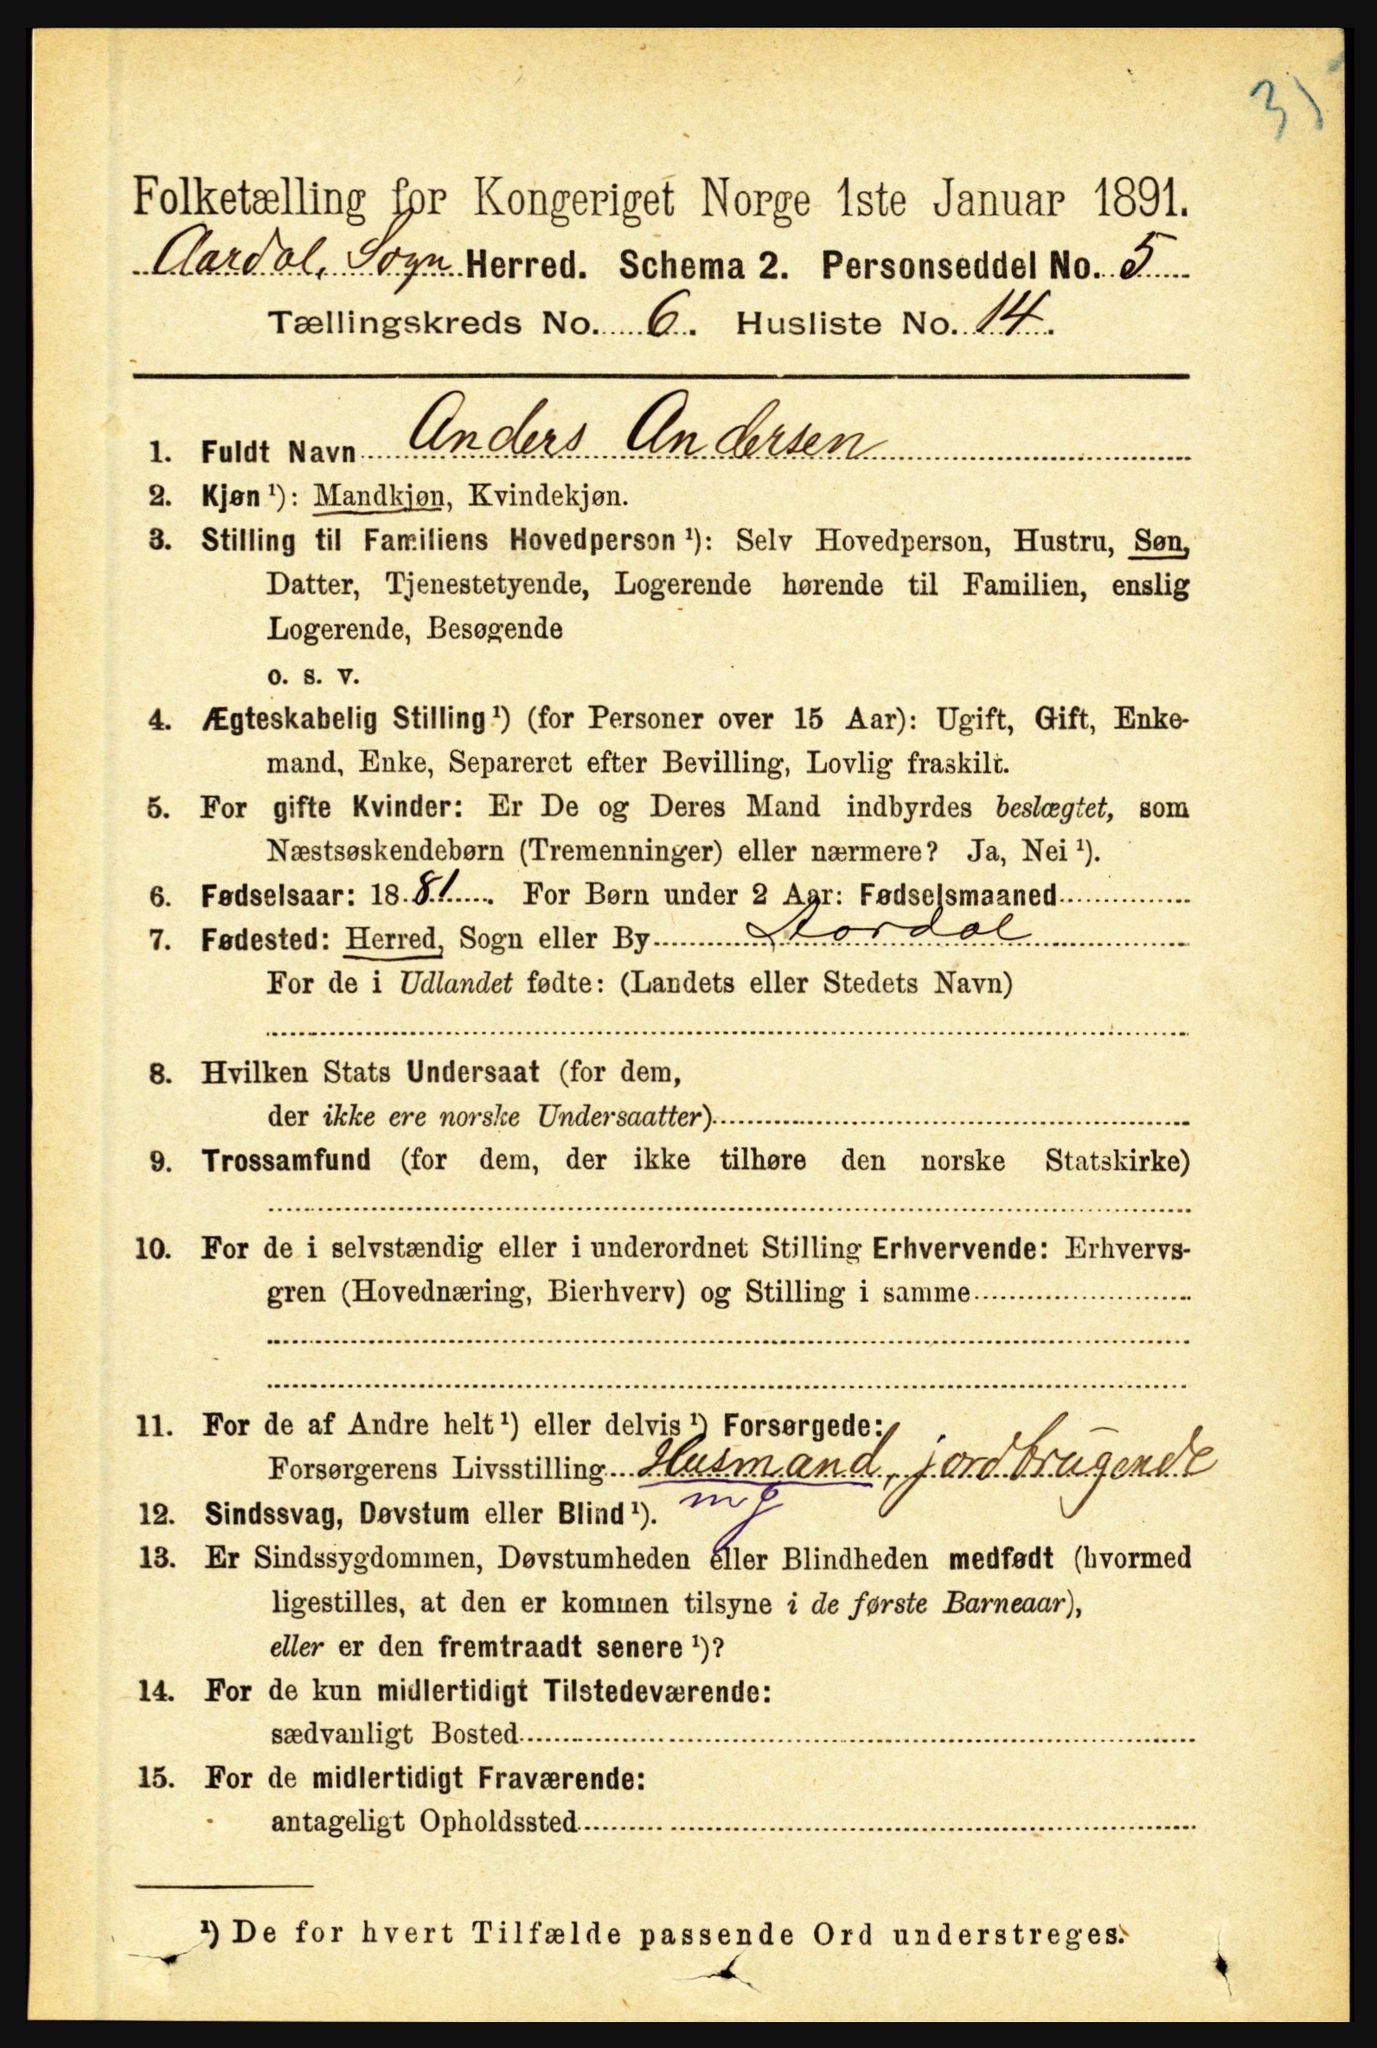 Folketælling for Kongeriget Norge 1ste Januar 1891.
Aardal, Sogn Herred. Schema 2. Personseddel No. 5
Tællingskreds No. 6. Husliste No. 14.
1. Fuldt Navn Anders Andersen
2. Kjøn ¹): Mandkjøn, Kvindekjøn.
3. Stilling til Familiens Hovedperson ¹): Selv Hovedperson, Hustru, Søn,
Datter, Tjenestetyende, Logerende hørende til Familien, enslig
Logerende, Besøgende
o. s. v.
4. Ægteskabelig Stilling ¹) (for Personer over 15 Aar): Ugift, Gift, Enke-
mand, Enke, Separeret efter Bevilling, Lovlig fraskilt.
5. For gifte Kvinder: Er De og Deres Mand indbyrdes beslægtet, som
Næstsøskendebørn (Tremenninger) eller nærmere? Ja, Nei ¹).
6. Fødselsaar: 1881. For Børn under 2 Aar: Fødselsmaaned
7. Fødested: Herred, Sogn eller By Aardal
For de i Udlandet fødte: (Landets eller Stedets Navn)
8. Hvilken Stats Undersaat (for dem,
der ikke ere norske Undersaatter)
9. Trossamfund (for dem, der ikke tilhøre den norske Statskirke)
10. For de i selvstændig eller i underordnet Stilling Erhvervende: Erhvervs-
gren (Hovednæring, Bierhverv) og Stilling i samme
11. For de af Andre helt ¹) eller delvis ¹) Forsørgede:
Forsørgerens Livsstilling Husmand, jordbrugende
mg
12. Sindssvag, Døvstum eller Blind ¹).
13. Er Sindssygdommen, Døvstumheden eller Blindheden medfødt (hvormed
ligestilles, at den er kommen tilsyne i de første Barneaar),
eller er den fremtraadt senere ¹)?
14. For de kun midlertidigt Tilstedeværende:
sædvanligt Bosted
15. For de midlertidigt Fraværende:
antageligt Opholdssted
¹) De for hvert Tilfælde passende Ord understreges.